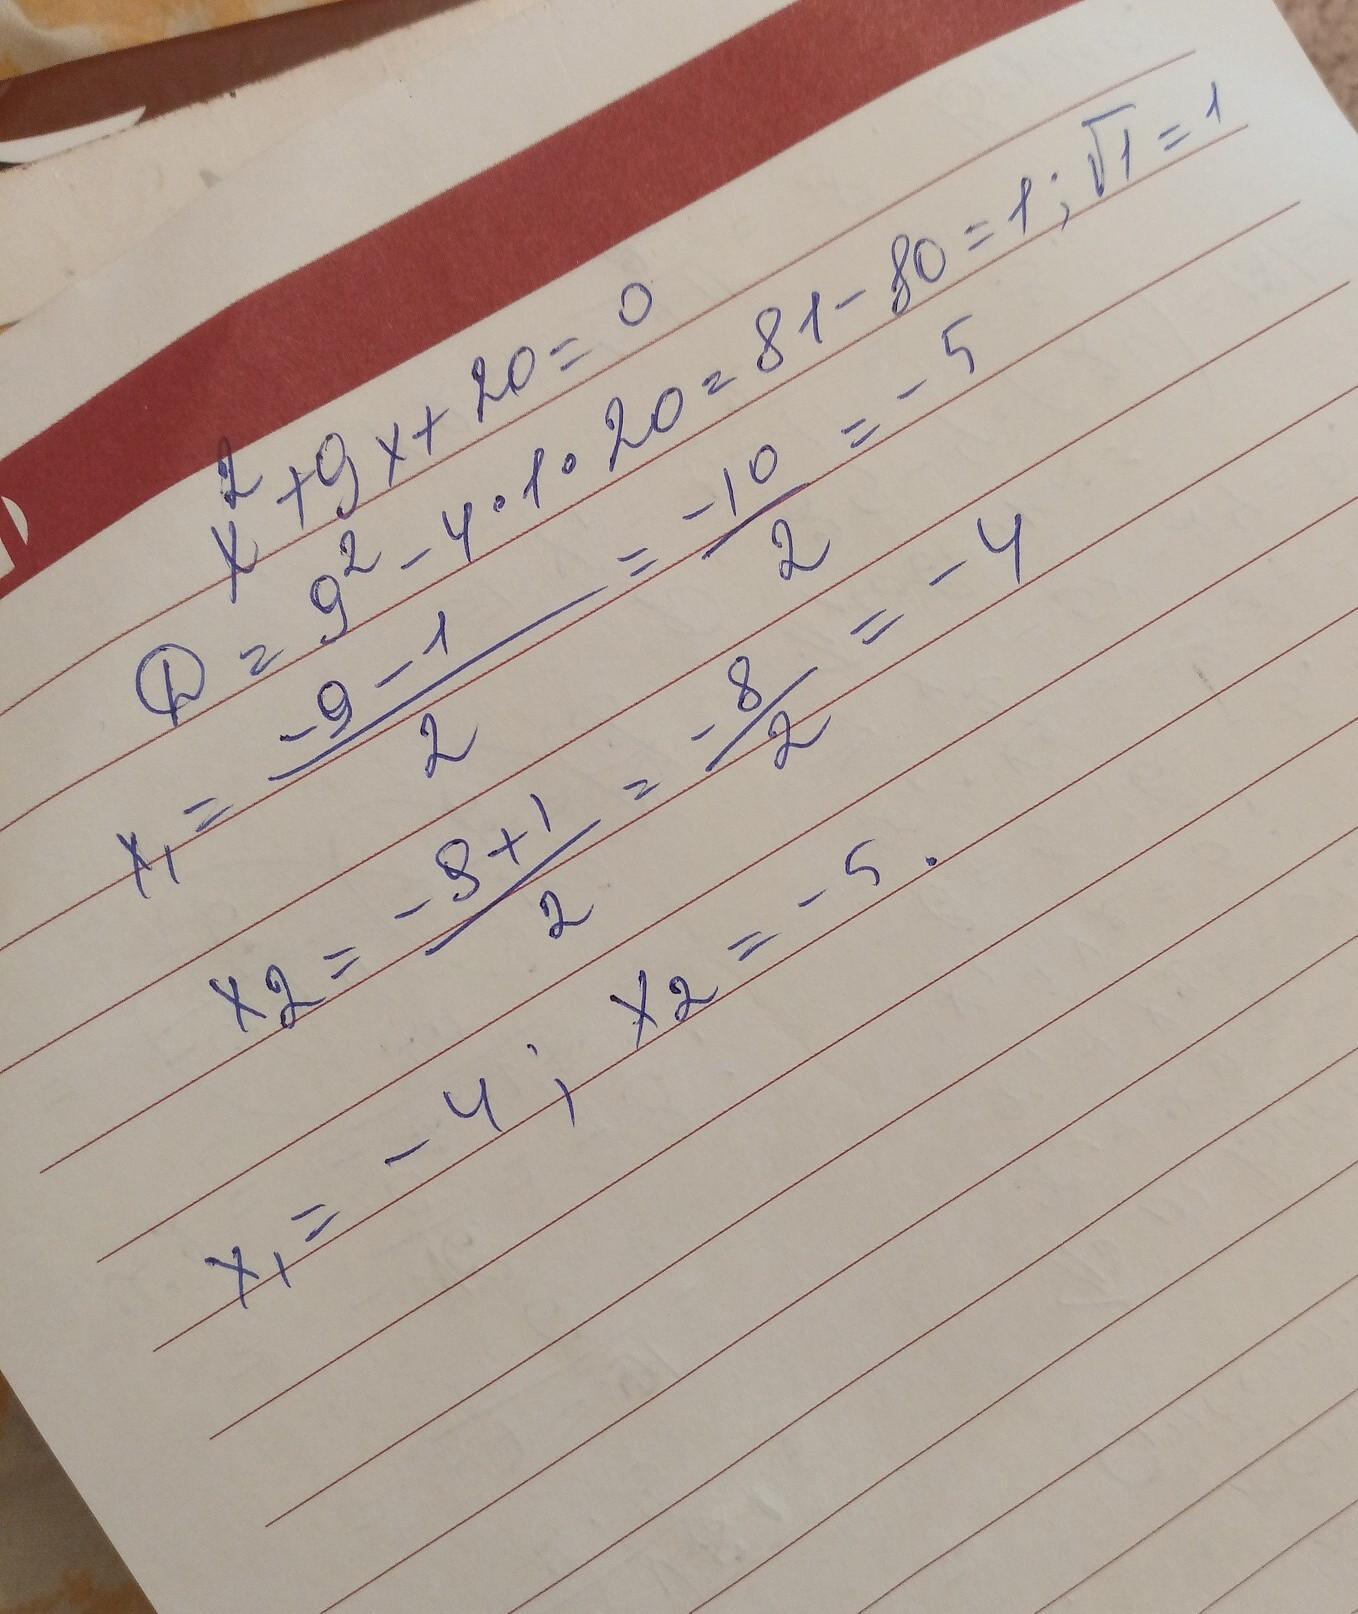 x² + 9x + 20 = 0
D = 9² - 4 · 1 · 20 = 81 - 80 = 1; √1 = 1
x₁ = (-9 - 1)/2 = -10/2 = -5
x2 = (-9 + 1)/2 = -8/2 = -4
x₁ = -4; x2 = -5.